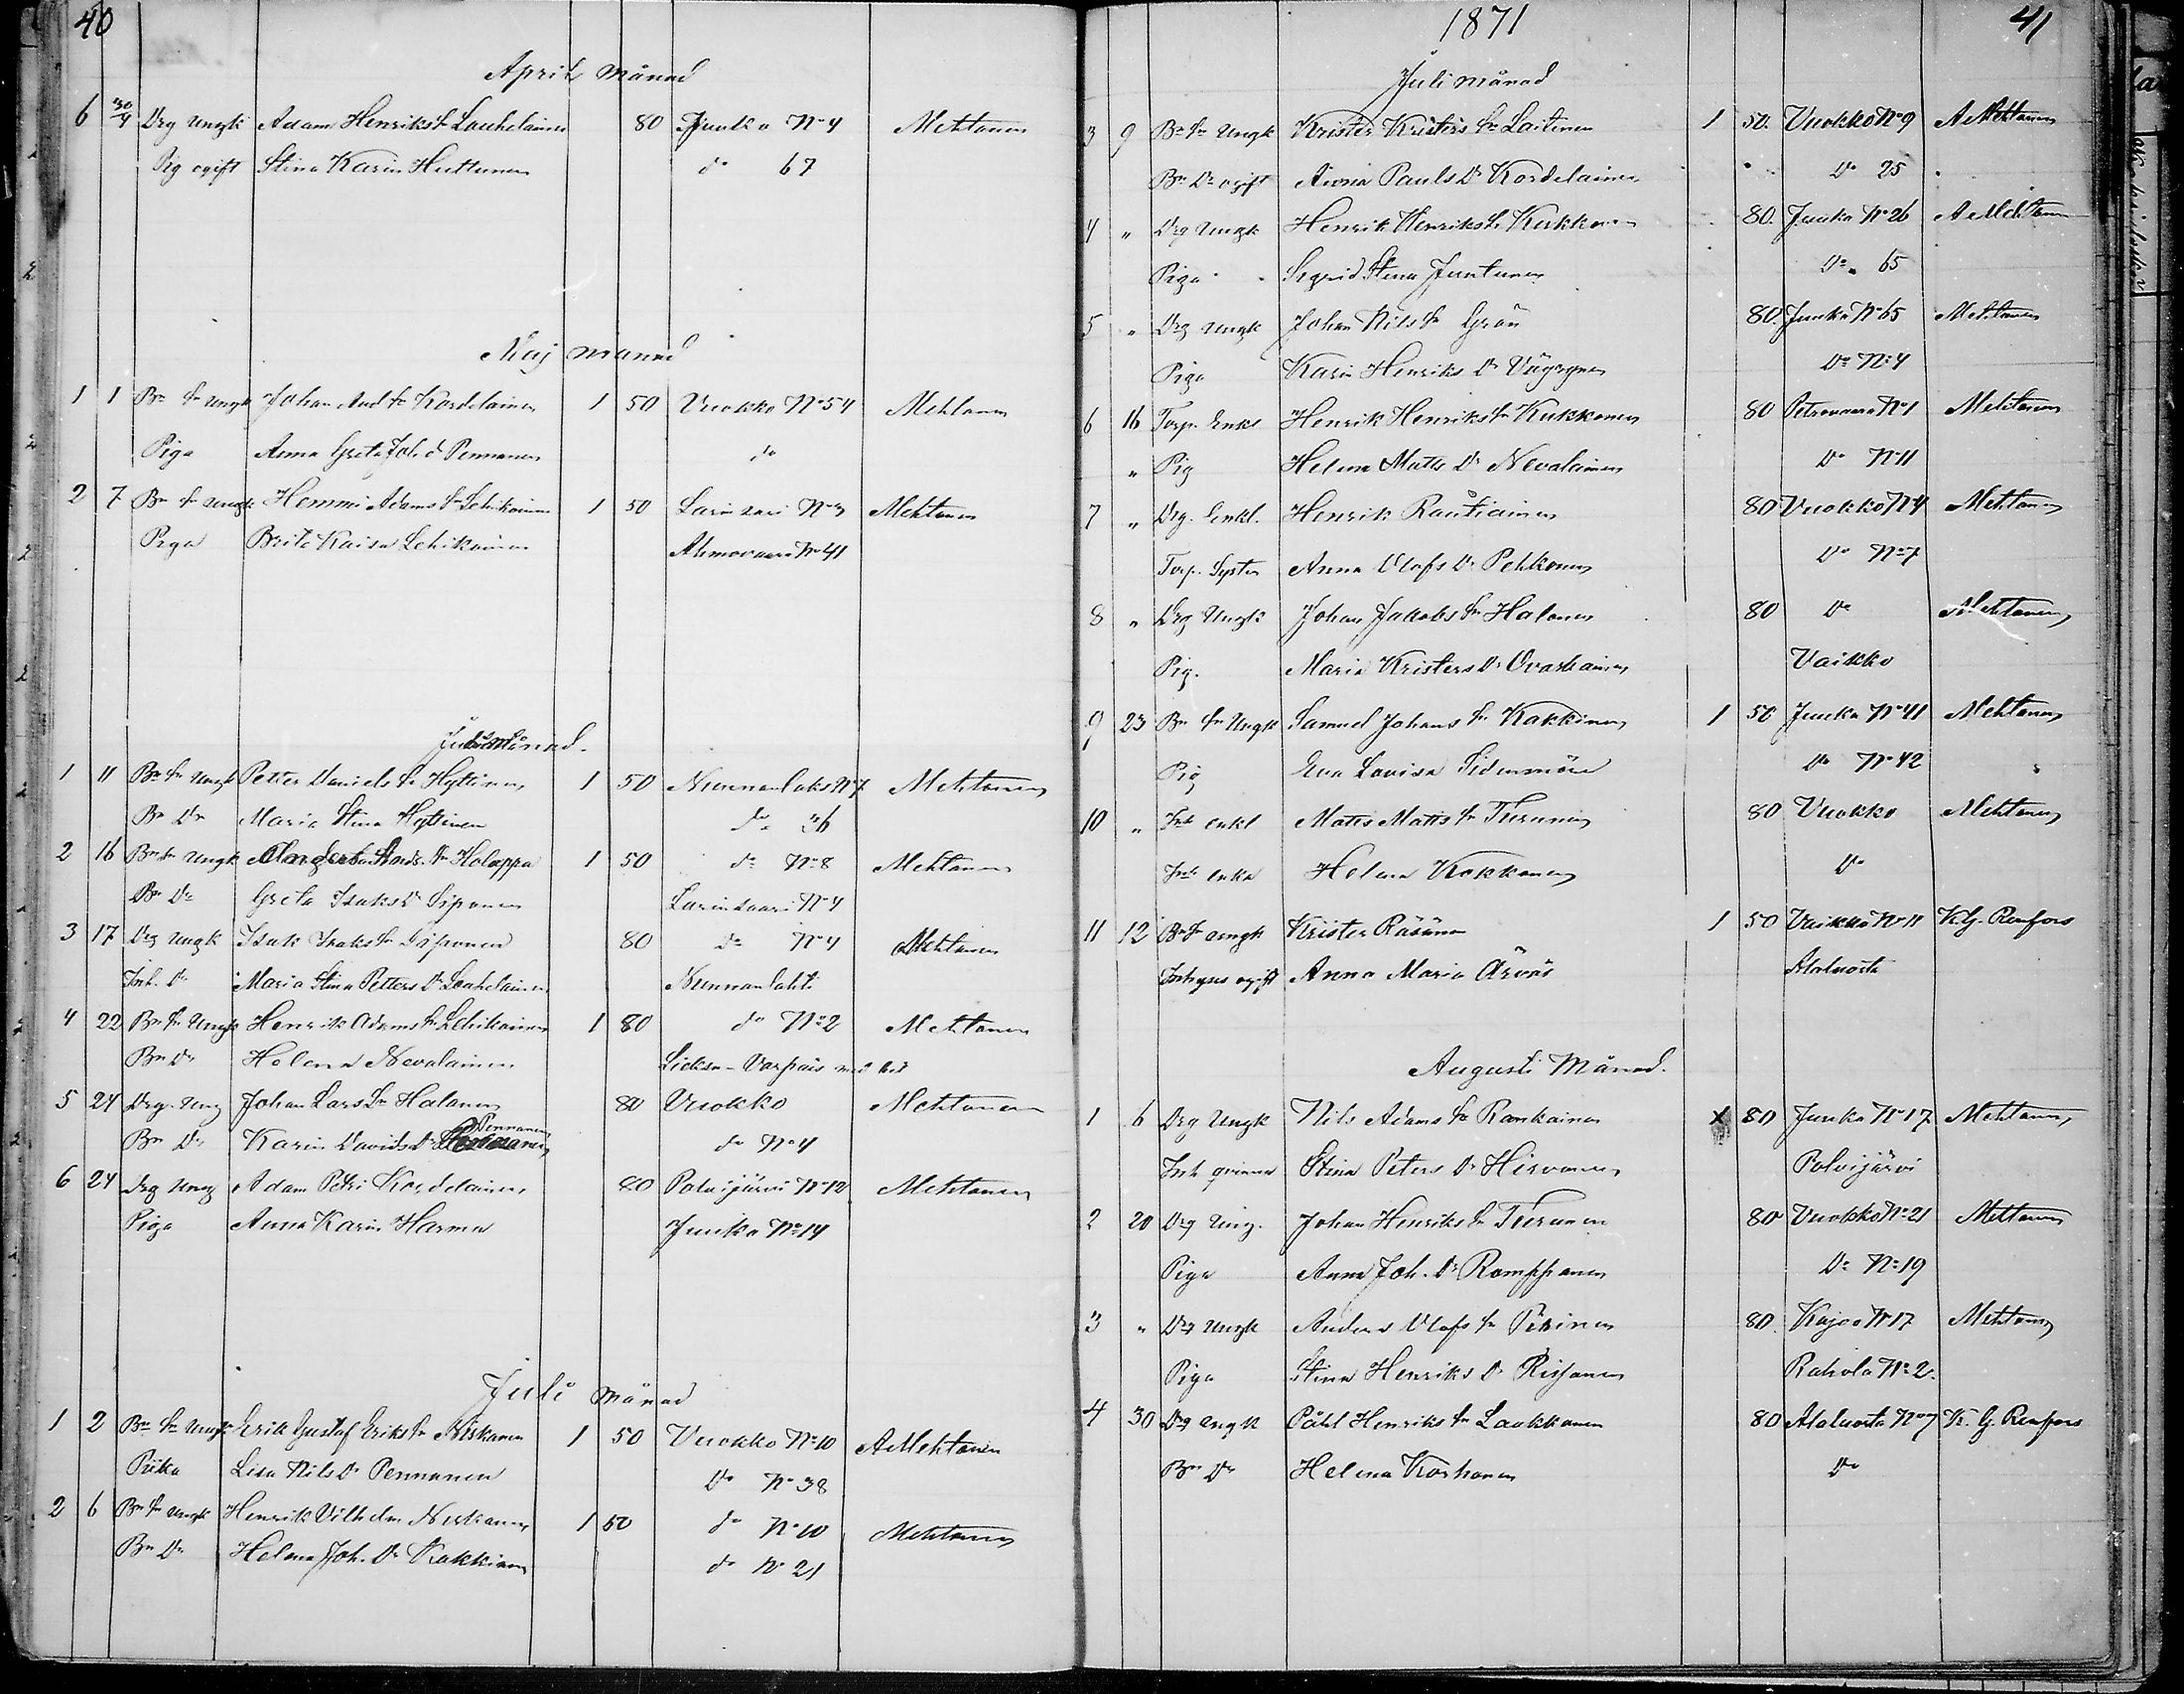 40
April månad
6 30/4 Drg Ungk Adam Henriks Sn Laukelainen 80 Junka No 4 Mehtonen
Pig ogift Stina Karin Huttunen do 67
Maj månad
1 1 Bn Sn Ungk Johan And Sn Kordelainen 1 50 Vuokko No 54 Mehtonen
Piga Anna Greta Joh. d Pennanen do
2 7 Bn Sn Ungk Hemmi Adams Sn Lehikoinen 1 50 Larinsari No 3 Mehtonen
Piga Brita Kaisa Lehikoinen Ahmovaara No 41
Månad.
1 11 Bn Sn Ungk Petter Daniels Sn Hyttinen 1 50 Nunnanlaks No 7 Mehtonen
Bn Dr Maria Stina Hyttinen do 36
2 16 Bn Sn Ungk Ands. Sn Holappa 1 50 do No 8 Mehtonen
Bn Dr Greta Isaks Dr Siponen Larinsaari No 4
3 17 Drg Ungk Isak Isaks Sn Siponen 80 do No 4 Mehtonen
Inh. Dr Maria Stina Petters Dr Laukelainen Nunnanlahti
4 22 Bn Sn Ungk Henrik Adams Sn Lehikoinen 1 80 do No 2 Mehtonen
Bn Dr Helena Nevalainen Lieksa - Varpais
5 24 Drg. Ung Johan Lars Sn Halonen 80 Vuokko Mehtonen
Bn Dr Karin Davids Dr Pennanen do No 4
6 24 Drg Ung Adam Petri Kordelainen 80 Polvijärvi No 12 Mehtonen
Piga Anna Karin Harma Junka No 14
Juli månad
1 2 Bn Sn Ungk Erik Gustaf Eriks Sn Niskanen 1 50 Vuokko No 10 A Mehtonen
Piika Lisa Nils Dr Pennanen Do No 38
2 6 Bn Sn Ungk Henrik Vilhelm Niskanen 1 50 do No 10 Mehtonen
Bn Dr Helena Joh. Dr Kakkinen do No 21
1871
41
Juli månad
3 9 Bn Sn Ungk Krister Kristers Sn Laitinen 1 50. Vuokko No 9 A Mehtonen
Bn Dr ogift Anna Pauls Dr Kordelainen Do 25
4 " Drg Ungk Henrik Henriks Sn Kukkonen 80. Junka No 26 A Mehtonen
Piga Sigrid Stina Juntunen Do 65
5 " Drg Ungk Johan Nils Sn Grön 80. Junka No 65 Mehtonen
Piga Karin Henriks Dr Väyrynen Do No 4
6 16 Torp. Enkl Henrik Henriks Sn Kukkonen 80 Petrovaara No 1 Mehtonen
" Pig Helena Matts Dr Nevalainen Do No 11
7 " Drg. Enkl. Henrik Rautiainen 80 Vuokko No 4 Mehtonen
Torp. Syster Anna Olofs Dr Pehkonen Do No 7
8 " Drg Ungk Johan Jakobs Sn Halonen 80 Do Mehtonen
Pig. Maria Kristers Dr Ovaskainen Vaikko
9 23 Bn Sn Ungk Samuel Johans Sn Kakkinen 1 50 Junka No 41 Mehtonen
Pig Eva Lovisa Sidenmöre Do No 42
10 " Inh enkl Matts Matts Sn Turunen 80 Vuokko Mehtonen
Inh enka Helena Kokkonen Do
11 12 Bn Sn ungk Krister Räsänen 1 50 Vaikko No 11 K.G. Renfors
Inhyses ogift Anna Maria Ärväs Alaluosta
Augusti Månad.
1 6 Drg Ungk Nils Adams Sn Ronkainen X 80 Junka No 17 Mehtonen
Inh qvinna Stina Peters Dr Hirvonen Polvijärvi
2 20 Drg Ung. Johan Henriks Sn Turunen 80 Vuokko No 21 Mehtonen
Piga Anna Joh. Dr Romppanen Do No 19
3 " Drg Ungk Anders Olofs Sn Piirinen 80. Kajoo No 17 Mehtonen
Piga Stina Henriks Dr Rissanen Rahola No 2.
4 30 Drg Ungk Påhl Henriks Sn Laukkanen 80 Alaluosta No 7 K. G. Renfors
Bn Dr Helena Korhonen Do